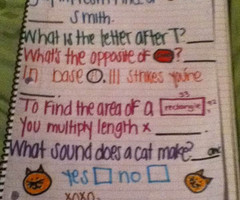 Smith.
What is the letter after T?
What's the opposite of ?
In base , 3 strikes you're
To find the area of a rectangle
You multply length x
What sound does a cat make?
yes no
xoxo